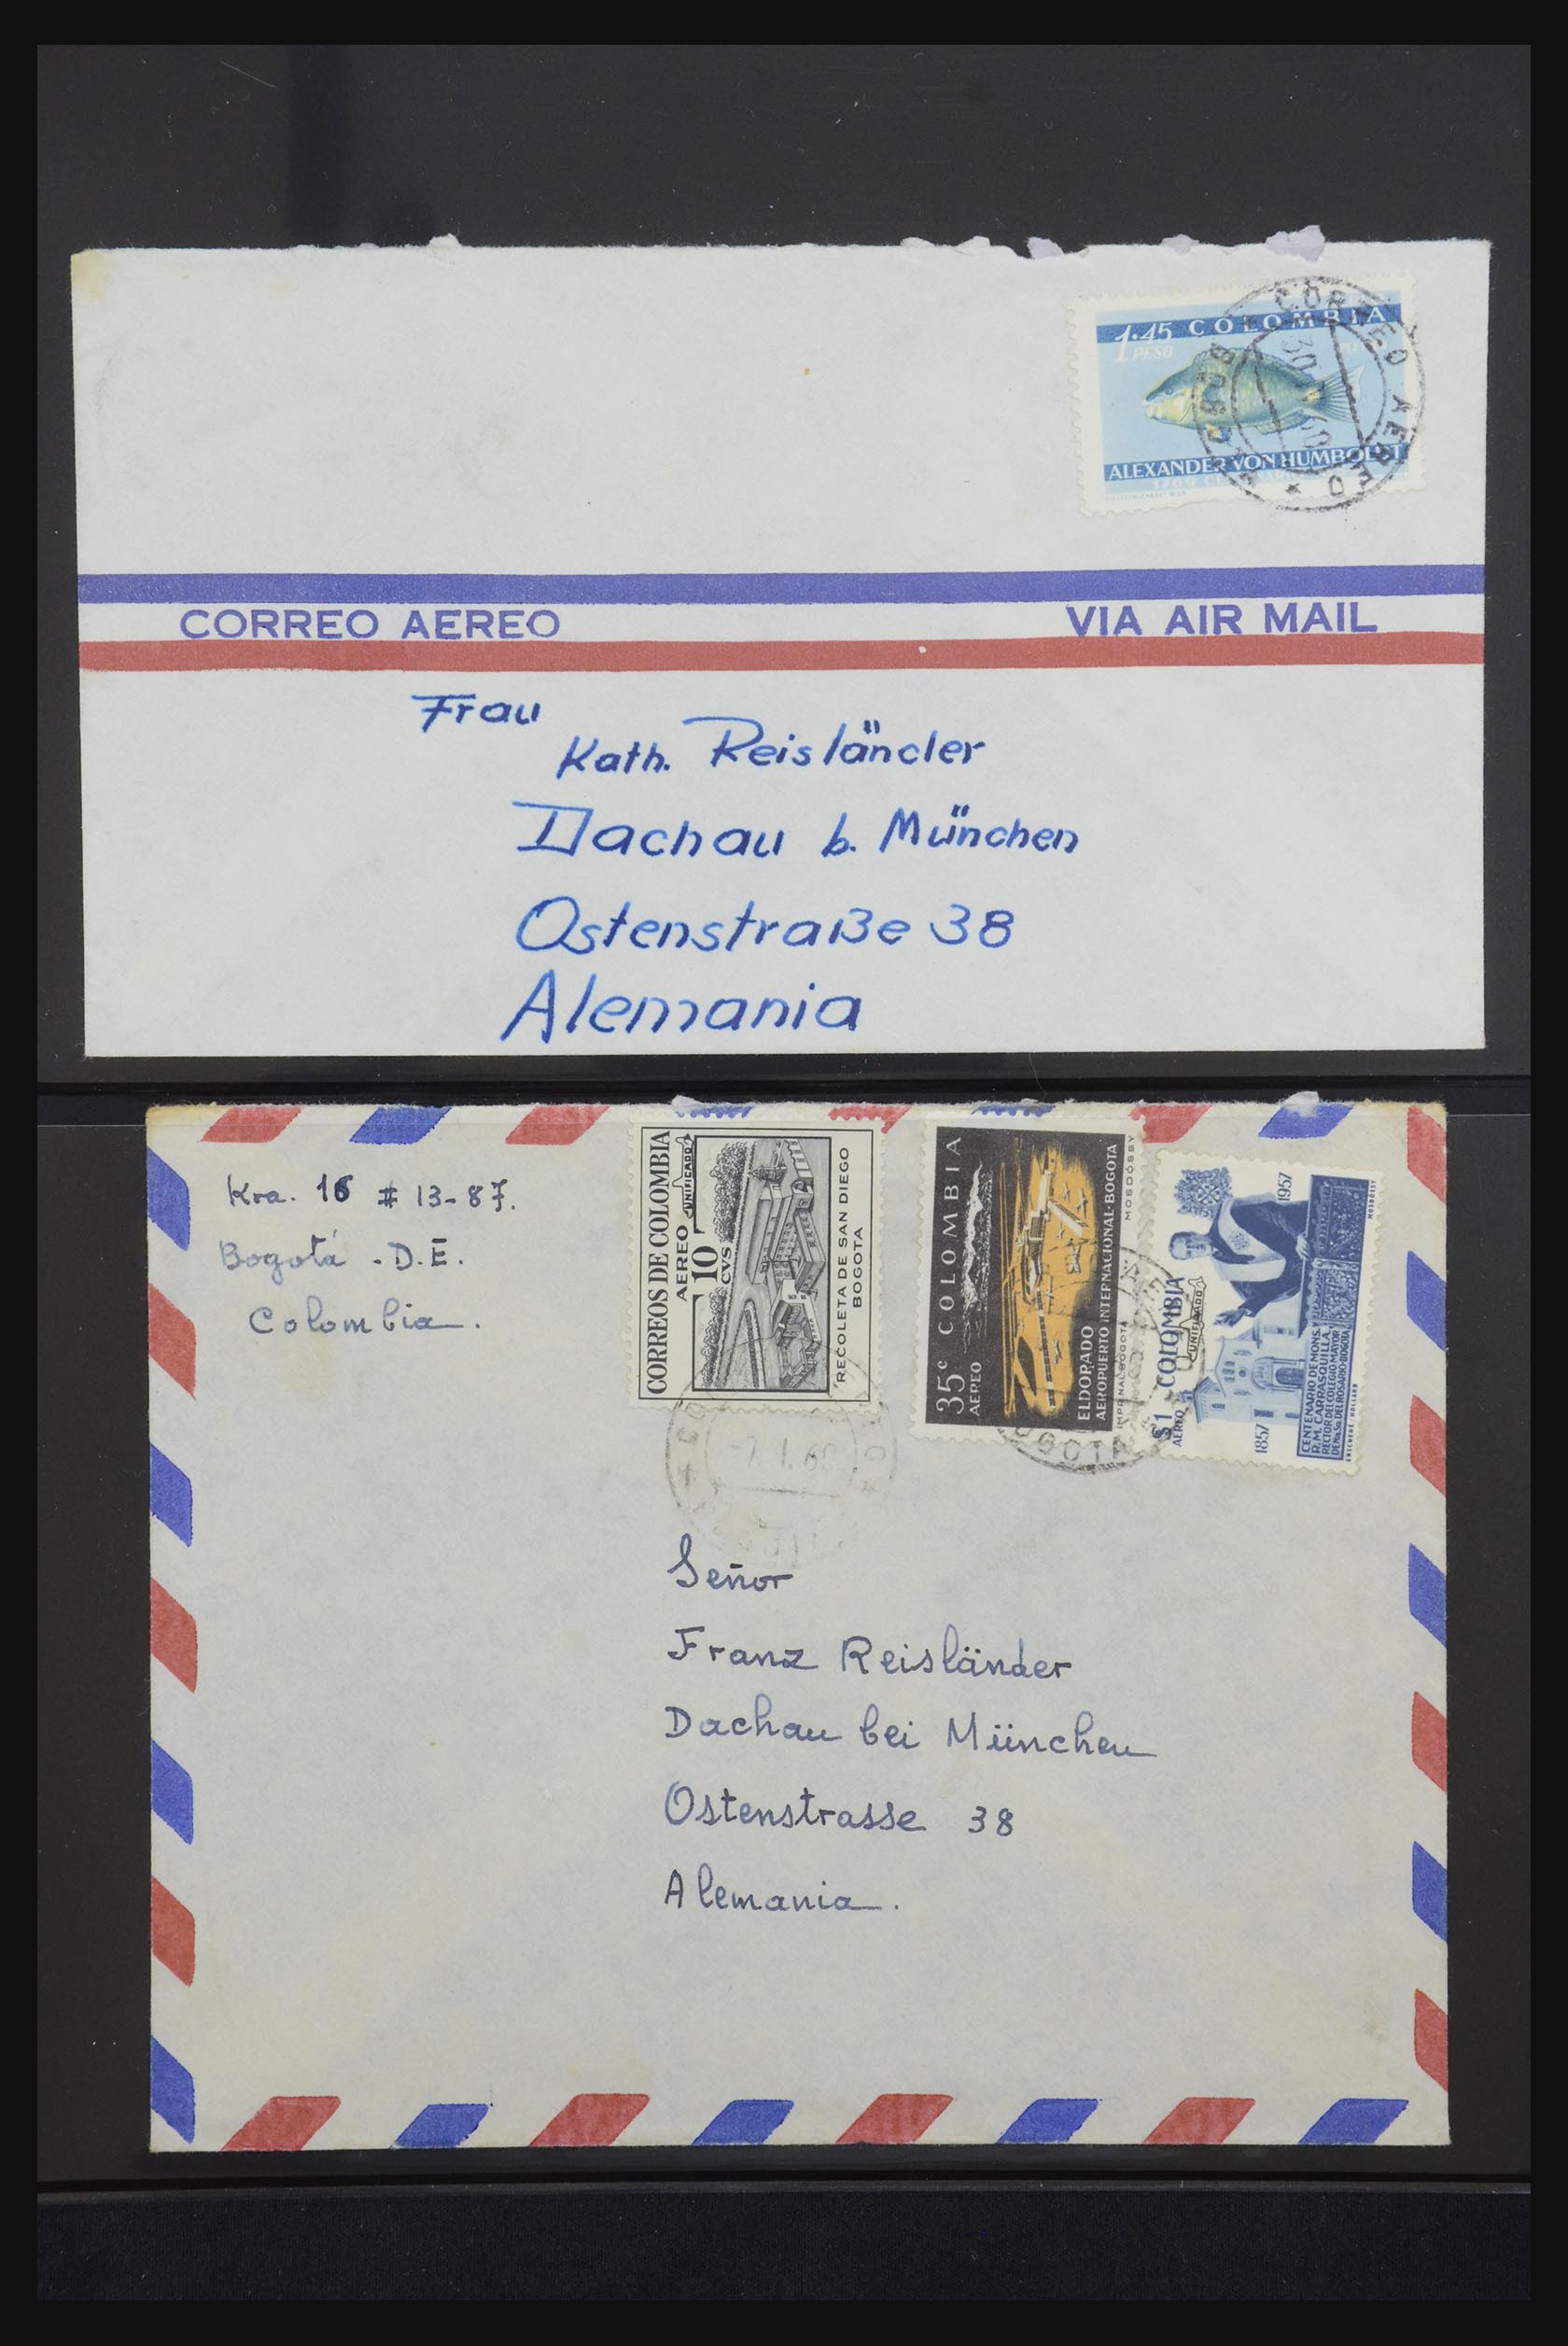 1.45 COLOMBIA
PESO
ALEXANDER VON HUMBOLDT
CORREO AEREO
BOGOTA
30
60
CORREO AEREO VIA AIR MAIL
Frau
Kath. Reisländer
Dachau b. München
Ostenstraße 38
Alemania
Kra. 16 # 13-87.
Bogotá - D.E.
Colombia.
CORREOS DE COLOMBIA
AEREO
UNIFICADO
10
CVS
RECOLETA DE SAN DIEGO
BOGOTA
35c COLOMBIA
AEREO
ELDORADO
AEROPUERTO INTERNACIONAL-BOGOTA
MOSDÓSSY
$1 COLOMBIA
AEREO
UNIFICADO
1857 1957
CENTENARIO DE MONS.
R.M. CARRASQUILLA.
RECTOR DEL COLEGIO MAYOR
DE Na. Sa. DEL ROSARIO-BOGOTA
ENSCHEDÉ HOLLAND
MOSDÓSSY
OGOTA
Señor
Franz Reisländer
Dachau bei München
Ostenstrasse 38
Alemania.